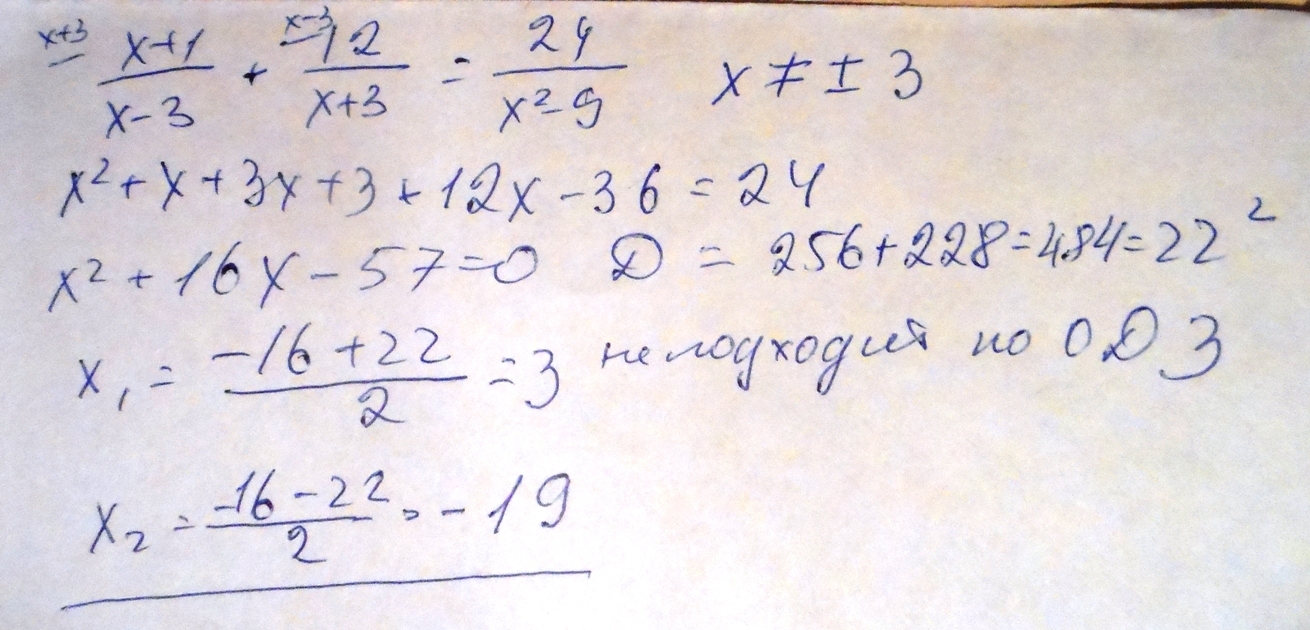 x+3 (x+1)/(x-3) + x-3 12/(x+3) = 24/(x²-9) x ≠ ± 3
x² + x + 3x + 3 + 12x - 36 = 24
x² + 16x - 57 = 0 D = 256 + 228 = 484 = 22²
x₁ = (-16 + 22)/2 = 3 не подходит по ОДЗ
x₂ = (-16 - 22)/2 = -19